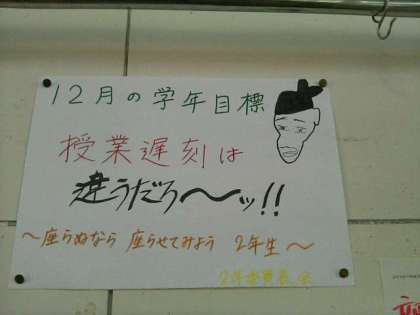 12月の学年目標
授業遅刻は
違うだろ〜ッ!!
〜座らぬなら 座らせてみよう 2年生〜
2年委員長会